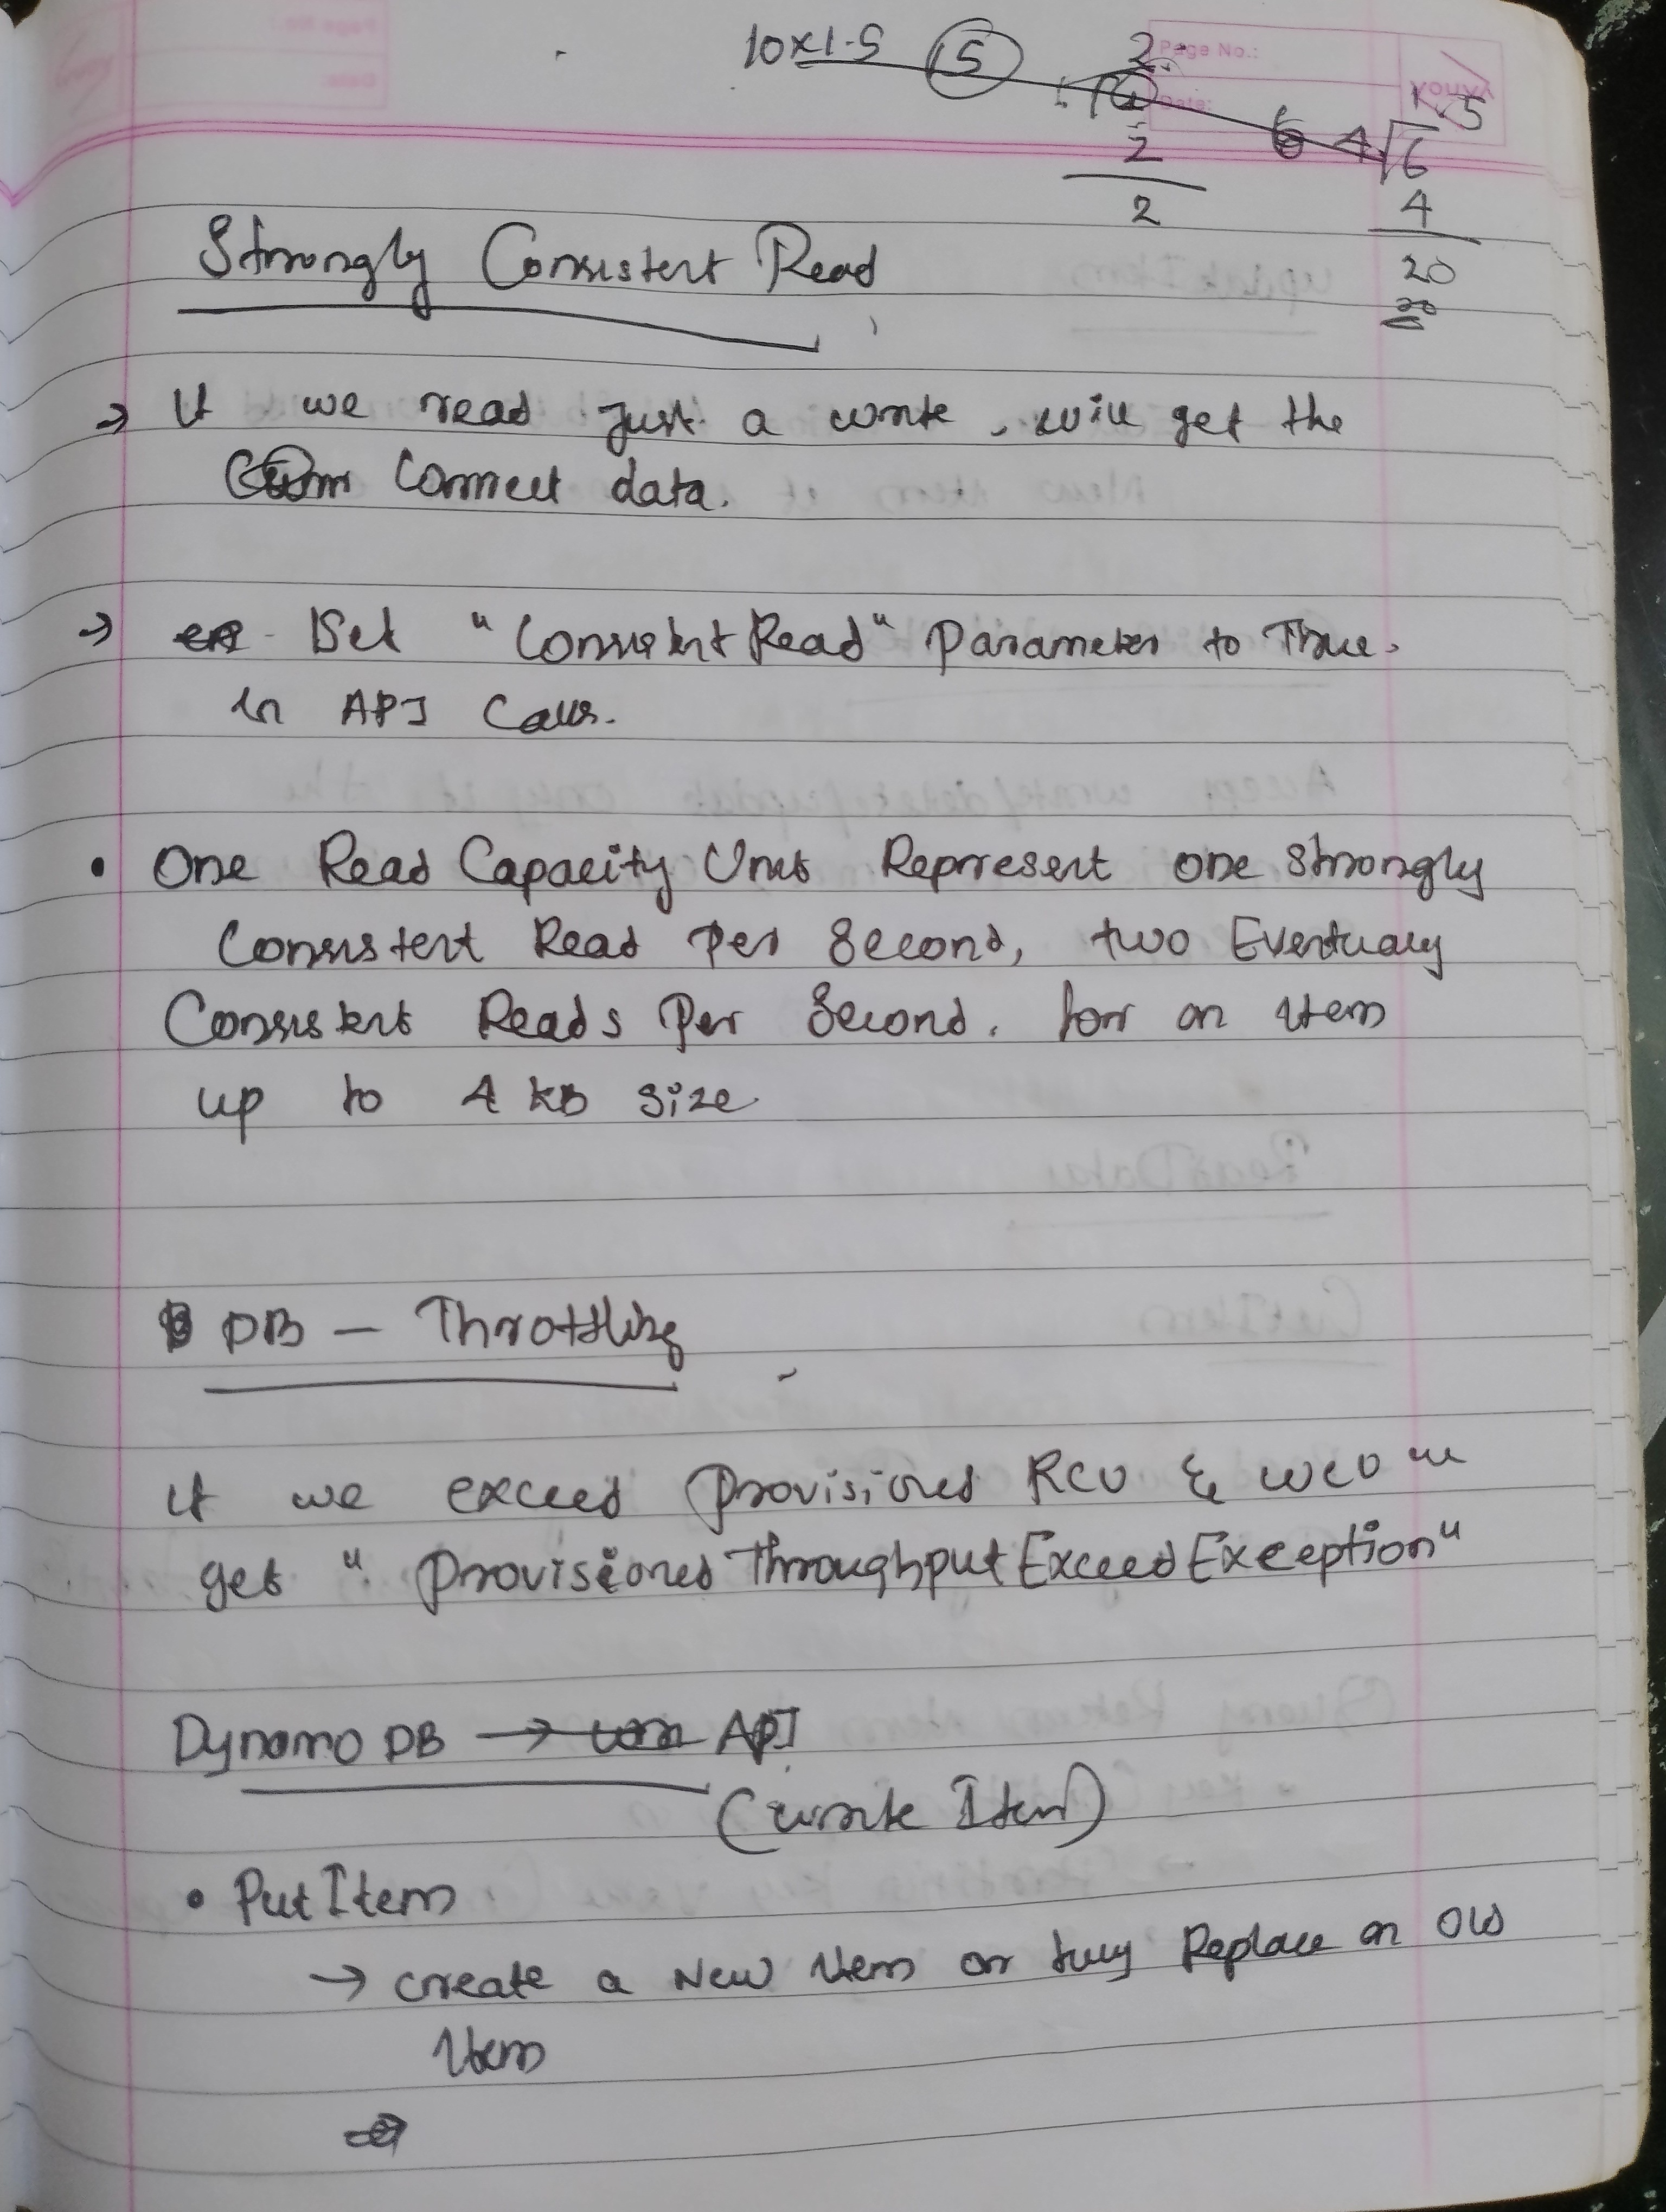 10x1.5 5 2
Page No.:
Date:
youvA
1.5
6 4√6
2
4
2
20
20
Strongly Consistent Read
→ If we read just a write, will get the
Correct data.
→ Set "ConsistentRead" Parameter to True.
in API Calls.
• One Read Capacity Units Represent one strongly
Consistent Read Per Second, two Eventualy
Consistent Reads Per Second. for an Item
up to 4 KB size
DB - Throttling
if we exceed Provisioned RCU & WCU we
get "ProvisionedThroughputExceedException"
Dynamo DB → API
(write Item)
• PutItem
→ create a New Item or fully Replace an Old
Item
→